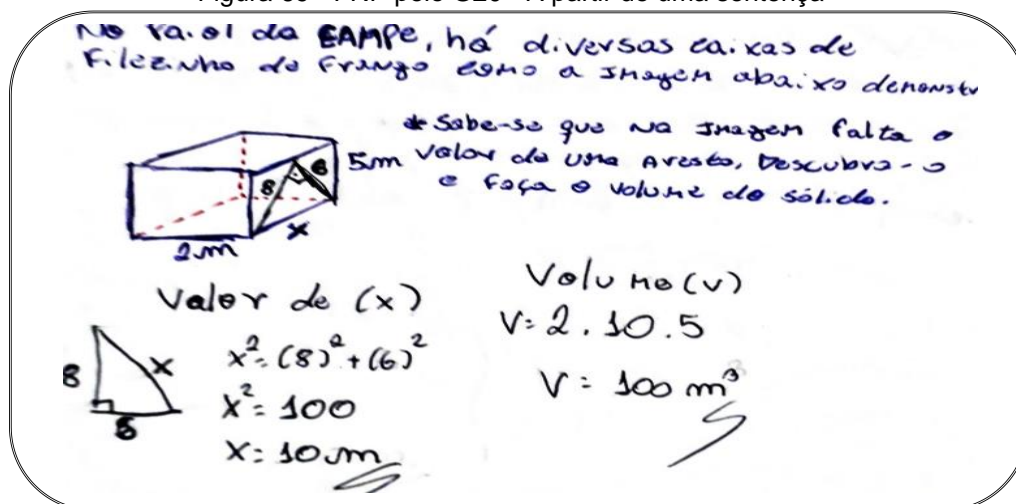 No rai.ol da EAMPe, há diversas cai.xas de
Filezinho de Frango como a Imagem abaixo demonstr
* Sabe-se que na Imagem falta o
valor de uma Aresta, Descubra-o
e faça o volume do sólido.
5m
8
6
x
2m
Valor de (x)
8
x
6
x²=(8)²+(6)²
x²= 100
x: 10m
Volume (v)
V: 2.10.5
V: 100 m³